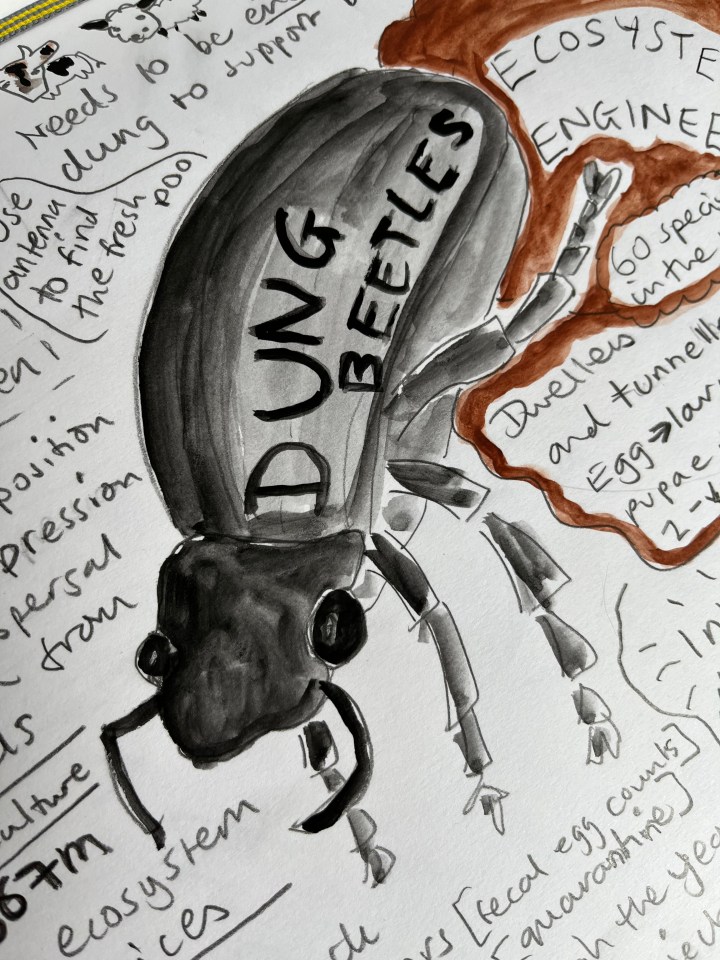 Needs to be
dung to support
Use
antenna
to find
the fresh
poo
ECOSYSTE
ENGINEE
60 speci
in the
DUNG
BEETLES
Dwellers
and tunnell
Egg → lar
pupae
2-
position
pression
persal
from
ds
culture
67m
ecosystem
ices
[fecal egg counts]
[quarantine]
the yea